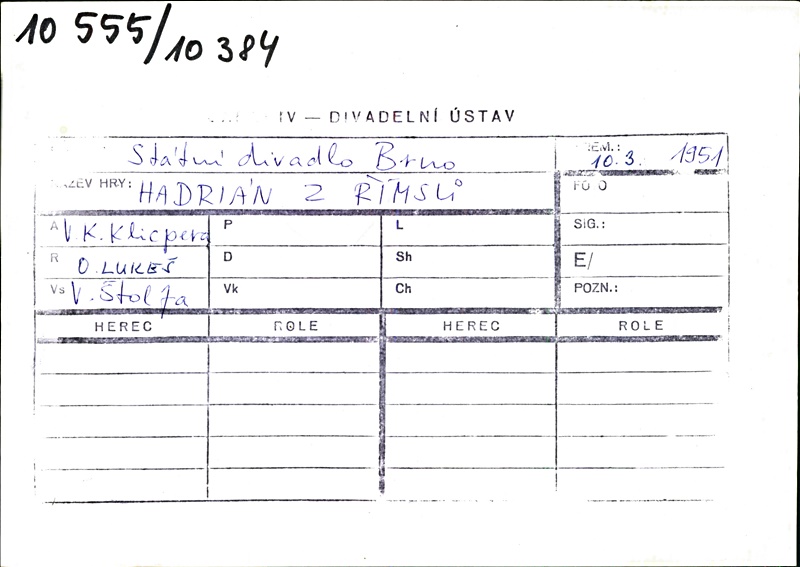 10 555/10 384
IV — DIVADELNÍ ÚSTAV
Státní divadlo Brno
10.3. 1951
HRY: HADRIÁN Z ŘÍMSŮ
FOTO
A V. K. Klicpera P L SIG.:
R O. LUKEŠ D Sh E/
Vs V. Štolfa Vk Ch POZN.:
HEREC ROLE HEREC ROLE